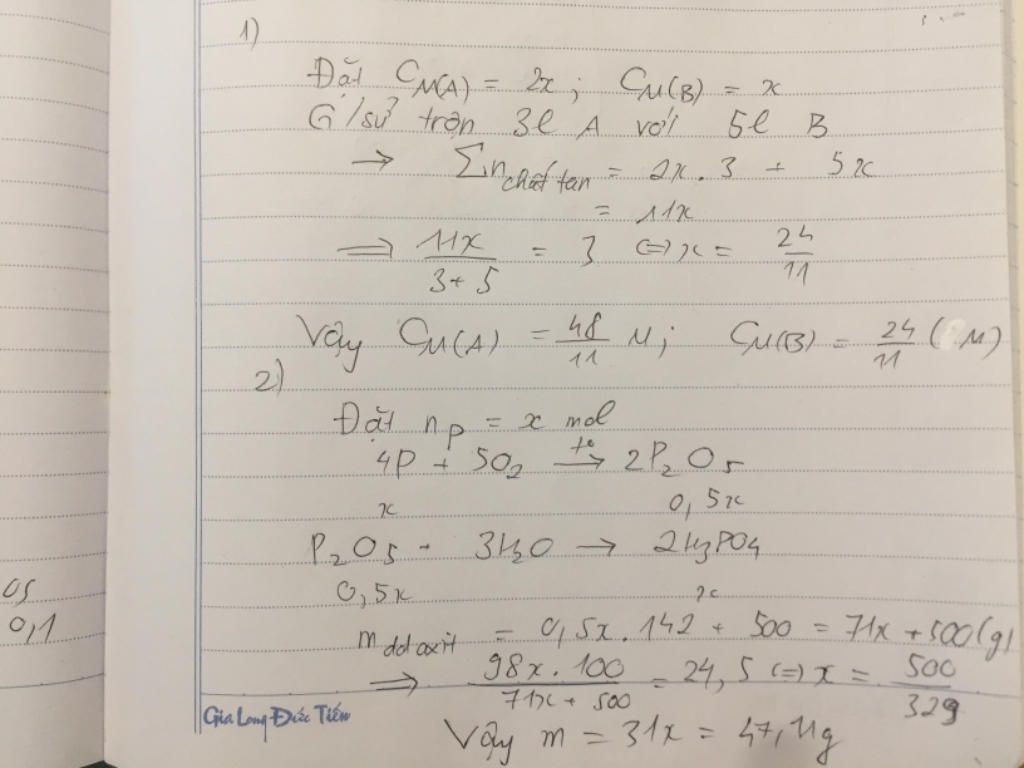 1)
Đặt CM(A) = 2x ; CM(B) = x
G/sử trộn 3l A với 5l B
→ Σn chất tan = 2x . 3 + 5x
= 11x
⇒ 11x / (3 + 5) = 3 ⇔ x = 24/11
Vậy CM(A) = 48/11 M ; CM(B) = 24/11 (M)
2)
Đặt nP = x mol
4P + 5O2 –t°→ 2P2O5
x 0,5x
P2O5 + 3H2O → 2H3PO4
0,5x x
m dd axit = 0,5x . 142 + 500 = 71x + 500 (g)
⇒ 98x . 100 / (71x + 500) = 24,5 ⇔ x = 500/329
Vậy m = 31x = 47,11g
Gia Long Đức Tiến
05
0,1